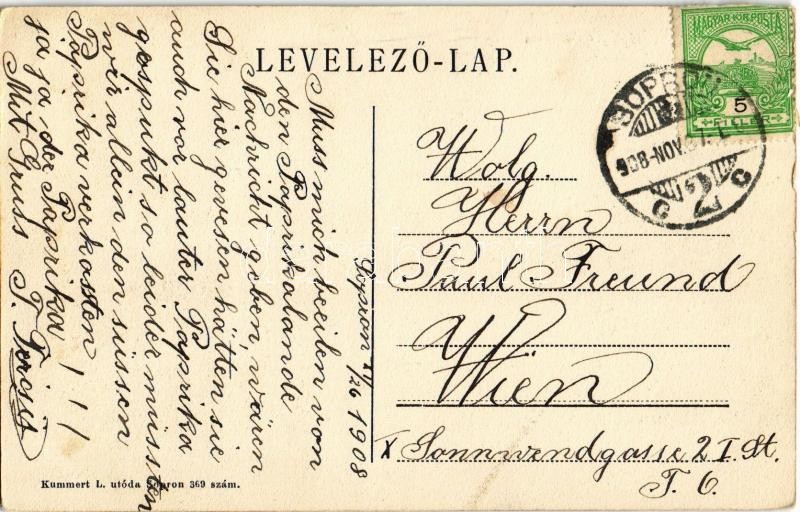 LEVELEZŐ-LAP.
MAGYAR KIR. POSTA
5
FILLER
SOPRON
908 NOV
Sopron XI/26 1908
Muss mich beeilen von
den Paprikalande
Nachricht geben, wären
Sie hier gewesen hätten sie
auch vor lauter Paprika
gespukt so leider mussten
wir allein den süssen
Paprika verkosten
ja ja der Paprika !!!
Mit Gruss T.
Wolg.
Herrn
Paul Freund
Wien
X Sonnwendgasse 2 I. St.
T. 6.
Kummert L. utóda Sopron 369 szám.